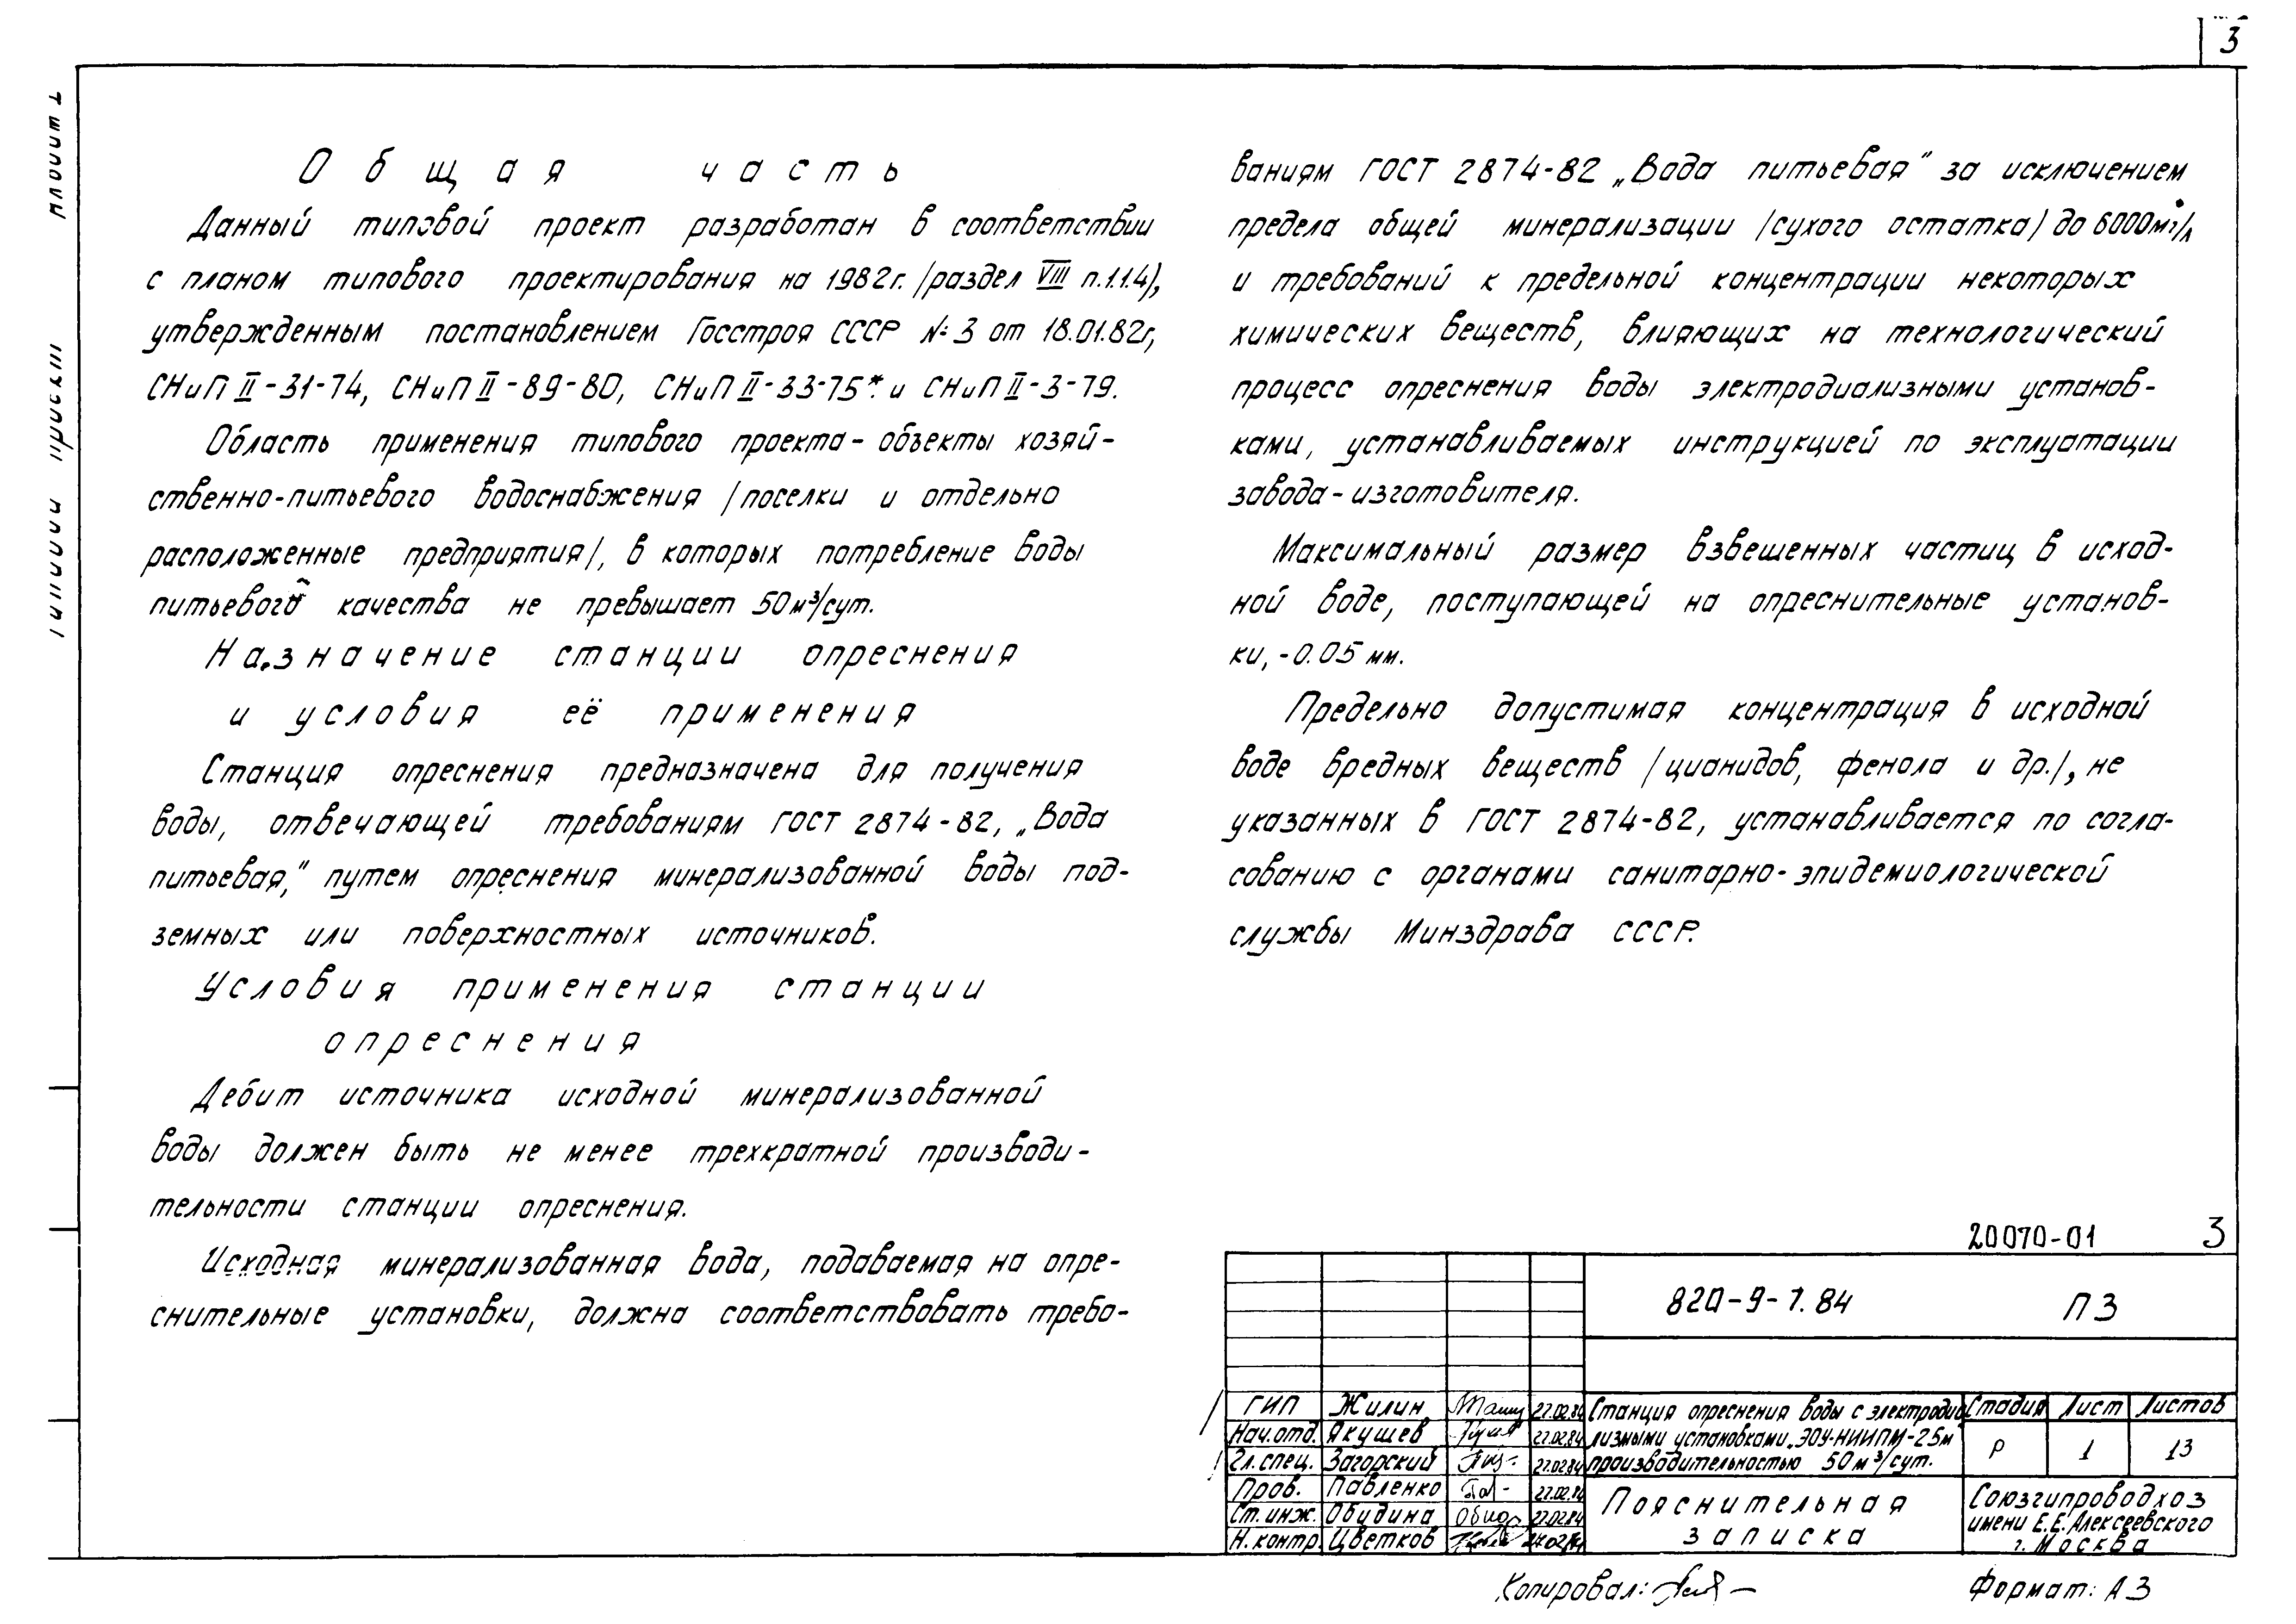 3
Общая часть
Данный типовой проект разработан в соответствии
с планом типового проектирования на 1982г. /раздел VIII п.1.1.4/,
утвержденным постановлением Госстроя СССР №3 от 18.01.82г,
СНиП II-31-74, СНиП II-89-80, СНиП II-33-75* и СНиП II-3-79.
Область применения типового проекта - объекты хозяй-
ственно-питьевого водоснабжения /поселки и отдельно
расположенные предприятия/, в которых потребление воды
питьевого качества не превышает 50м³/сут.
Назначение станции опреснения
и условия её применения
Станция опреснения предназначена для получения
воды, отвечающей требованиям ГОСТ 2874-82, „Вода
питьевая," путем опреснения минерализованной воды под-
земных или поверхностных источников.
Условия применения станции
опреснения
Дебит источника исходной минерализованной
воды должен быть не менее трехкратной производи-
тельности станции опреснения.
Исходная минерализованная вода, подаваемая на опре-
снительные установки, должна соответствовать требо-
ваниям ГОСТ 2874-82 „Вода питьевая" за исключением
предела общей минерализации /сухого остатка/ до 6000мг/л
и требований к предельной концентрации некоторых
химических веществ, влияющих на технологический
процесс опреснения воды электродиализными установ-
ками, устанавливаемых инструкцией по эксплуатации
завода-изготовителя.
Максимальный размер взвешенных частиц в исход-
ной воде, поступающей на опреснительные установ-
ки, -0.05 мм.
Предельно допустимая концентрация в исходной
воде вредных веществ /цианидов, фенола и др./, не
указанных в ГОСТ 2874-82, устанавливается по согла-
сованию с органами санитарно-эпидемиологической
службы Минздрава СССР.
20070-01 3
820-9-1.84 ПЗ
ГИП Жилин 27.02.84
Нач.отд. Якушев 27.02.84
Гл.спец. Загорский 27.02.84
Пров. Павленко 27.02.84
Ст.инж. Обидина 27.02.84
Н.контр. Цветков
Станция опреснения воды с электродиа
лизными установками „ЭОУ-НИИПМ-25м"
производительностью 50м³/сут.
Стадия Лист Листов
Р 1 13
Пояснительная
записка
Союзгипроводхоз
имени Е.Е.Алексеевского
г. Москва
Копировал:
Формат: А3